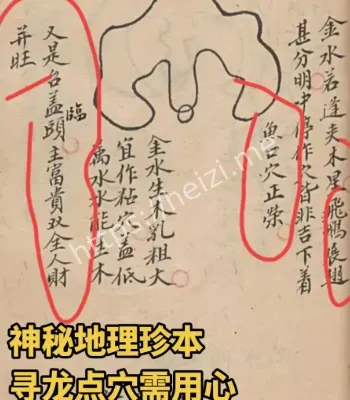 金水若逢夹木星飛鵬展翅
甚分明中停作穴皆非吉下着
魚口穴正榮
金水生木乳粗大
宜作粘穴盖低
為水水能生木
又是台盖頭臨主富貴双全人財
并旺
https://heizi.me
神秘地理珍本
寻龙点穴需用心